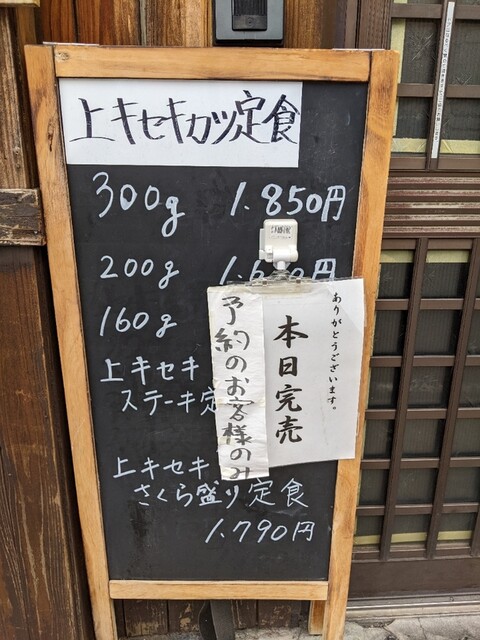 上キセキカツ定食
300g 1.850円
200g
160g
上キセキ
ステーキ定
上キセキ
さくら盛り定食
1.790円
予約のお客様のみ
本日完売
ありがとうございます。